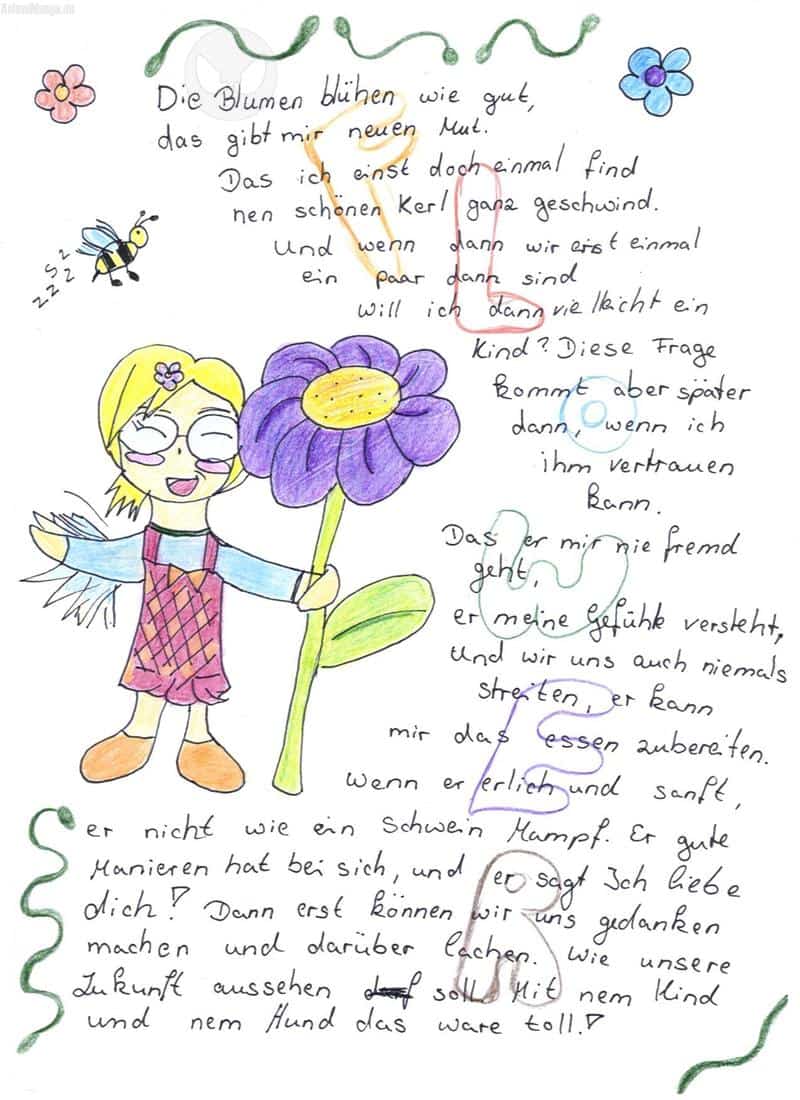 AnimeManga.de
Die Blumen blühen wie gut,
das gibt mir neuen Mut.
Das ich einst doch einmal find
nen schönen Kerl ganz geschwind.
Und wenn dann wir erst einmal
ein paar dann sind
will ich dann vielleicht ein
Kind? Diese Frage
kommt aber später
dann, wenn ich
ihm vertrauen
kann.
Das er mir nie fremd
geht,
er meine Gefühle versteht,
Und wir uns auch niemals
streiten, er kann
mir das essen zubereiten.
Wenn er erlich und sanft,
er nicht wie ein Schwein Mampf. Er gute
Manieren hat bei sich, und er sagt Ich liebe
dich! Dann erst können wir uns gedanken
machen und darüber lachen. Wie unsere
Zukunft aussehen soll. Mit nem Kind
und nem Hund das ware toll!
zzzzz
FLOWER